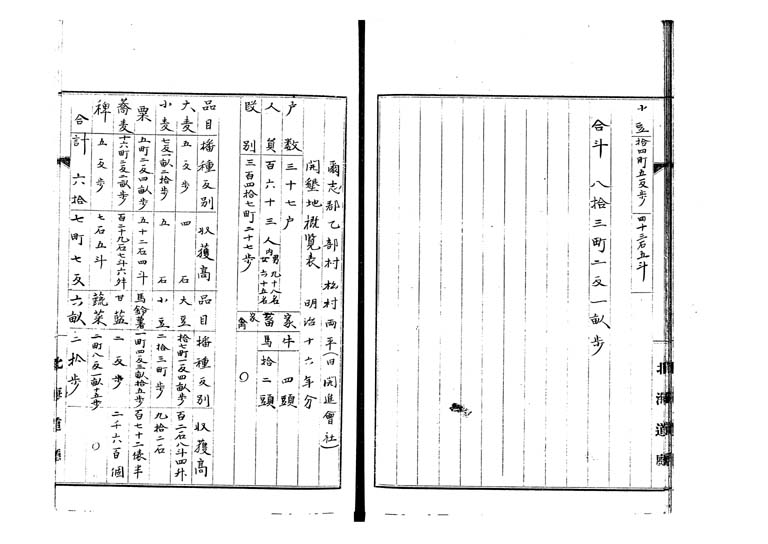 小豆 拾四町五反歩 四十三石五斗
合斗 八拾三町二反一畝歩
北海道廳
爾志郡乙部村松村両平(旧開進會社)
開墾地概覧表 明治十六年分
戸数 三十七戸 家畜 牛 四頭
人員 百六十三人 内 男九十八名 女六十五名 馬拾二頭
段別 三百四拾七町二十七歩 家禽 〇
品目 播種反別 収獲高 品目 播種反別 収獲高
大麦 五反歩 四石 大豆 拾七町一反四畝歩 百二石八斗四升
小麦 七反一畝二拾歩 五石 小豆 二拾三町歩 九拾二石
粟 五町二反四畝歩 五十二石四斗 馬鈴薯 一町四反三畝拾五歩 百七十二俵半
蕎麦 十六町二反二畝歩 百二十九石七斗六升 甘藍 二反歩 二千六百個
稗 五反歩 七石五斗 蔬菜 二町八反一畝十五歩 〇
合計 六拾七町七反六畝二拾歩
北海道廳